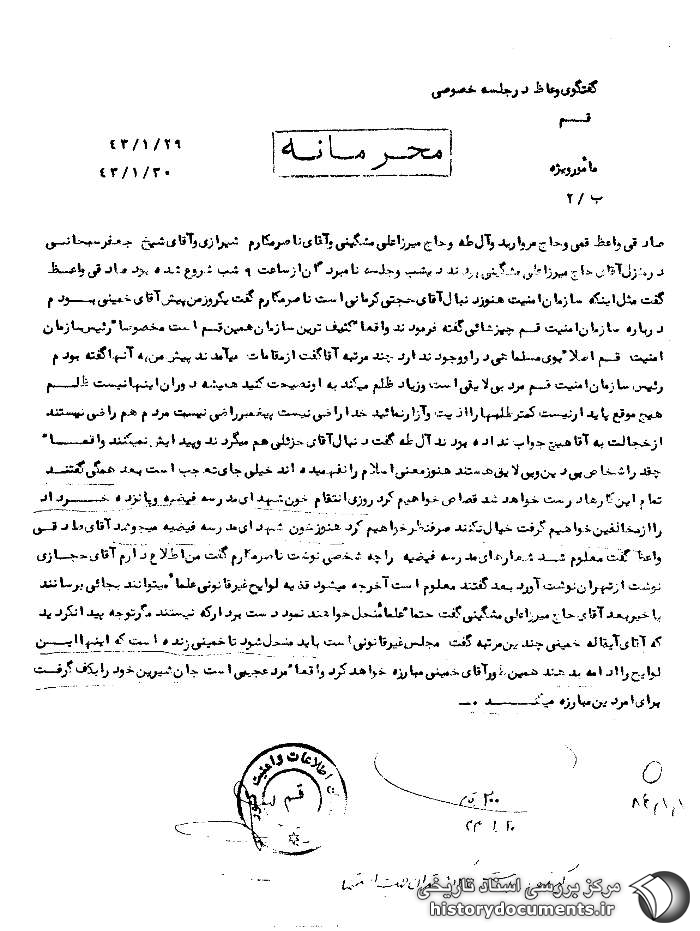 گفتگوی وعاظ در جلسه خصوصی
قم
۴۳/۱/۲۹
محرمانه
مأمور ویژه
۴۳/۱/۳۰
ب /۲
صادقی واعظ قمی وحاج مروارید وآل طه وحاج میرزاعلی مشگینی وآقای ناصرمکارم شیرازی وآقای شیخ جعفر سبحانی
در منزل آقای حاج میرزاعلی مشگینی بودند دیشب وجلسه نامبردگان از ساعت ۹ شب شروع شده بود صادقی واعظ
گفت مثل اینکه سازمان امنیت هنوز دنبال آقای حجتی کرمانی است ناصرمکارم گفت یکروز من پیش آقای خمینی بودم
درباره سازمان امنیت قم چیزهائی گفته فرمودند واقعاً کثیف ترین سازمان همین قم است مخصوصاً رئیس سازمان
امنیت قم اصلاً بوی مسلمانی در او وجود ندارد چند مرتبه آقا گفت از مقامات میآمدند پیش من به آنها گفته بودم
رئیس سازمان امنیت قم مرد بی لایقی است وزیاد ظلم میکند به او نصیحت کنید همیشه دوران اینها نیست ظلم
هیچ موقع پایدار نیست کمتر طلبه‌ها را اذیت وآزار نمائید خدا راضی نیست پیغمبر راضی نیست مردم هم راضی نیستند
از خجالت به آقا هیچ جواب نداده بودند آل طه گفت دنبال آقای خزئلی هم میگردند وپیدایش نمیکنند واقعاً
چقدر اشخاص بی دین وبی لایقی هستند هنوز معنی اسلام را نفهمیده اند خیلی جای تعجب است بعد همگی گفتند
تمام این کارها درست خواهد شد قصاص خواهیم کرد روزی انتقام خون شهدای مدرسه فیضیه وپانزده خرداد
را از مخالفین خواهیم گرفت خیال نکنند صرفنظر خواهیم کرد هنوز خون شهدای مدرسه فیضیه میجوشد آقای صادقی
واعظ گفت معلوم شد شعارهای مدرسه فیضیه را چه شخصی نوشت ناصرمکارم گفت من اطلاع دارم آقای حجازی
نوشت از تهران نوشت آورد بعد گفتند معلوم است آخر چه میشود قضیه لوایح غیرقانونی علماء میتوانند بجائی برسانند
یا خیر بعد آقای حاج میرزاعلی مشگینی گفت حتماً علماء منحل خواهند نمود دست بردار که نیستند مگر توجه پیدا نکردید
که آقای آیةاله خمینی چندین مرتبه گفت مجلس غیرقانونی است باید منحل شود تا خمینی زنده است که اینها این
لوایح را ادامه بدهند همین طور آقای خمینی مبارزه خواهد کرد واقعاً مرد عجیبی است جان شیرین خود را بکف گرفت
برای امر دین مبارزه میکند
اطلاعات وامنیت کشور
قم
مرکز بررسی اسناد تاریخی
historydocuments.ir